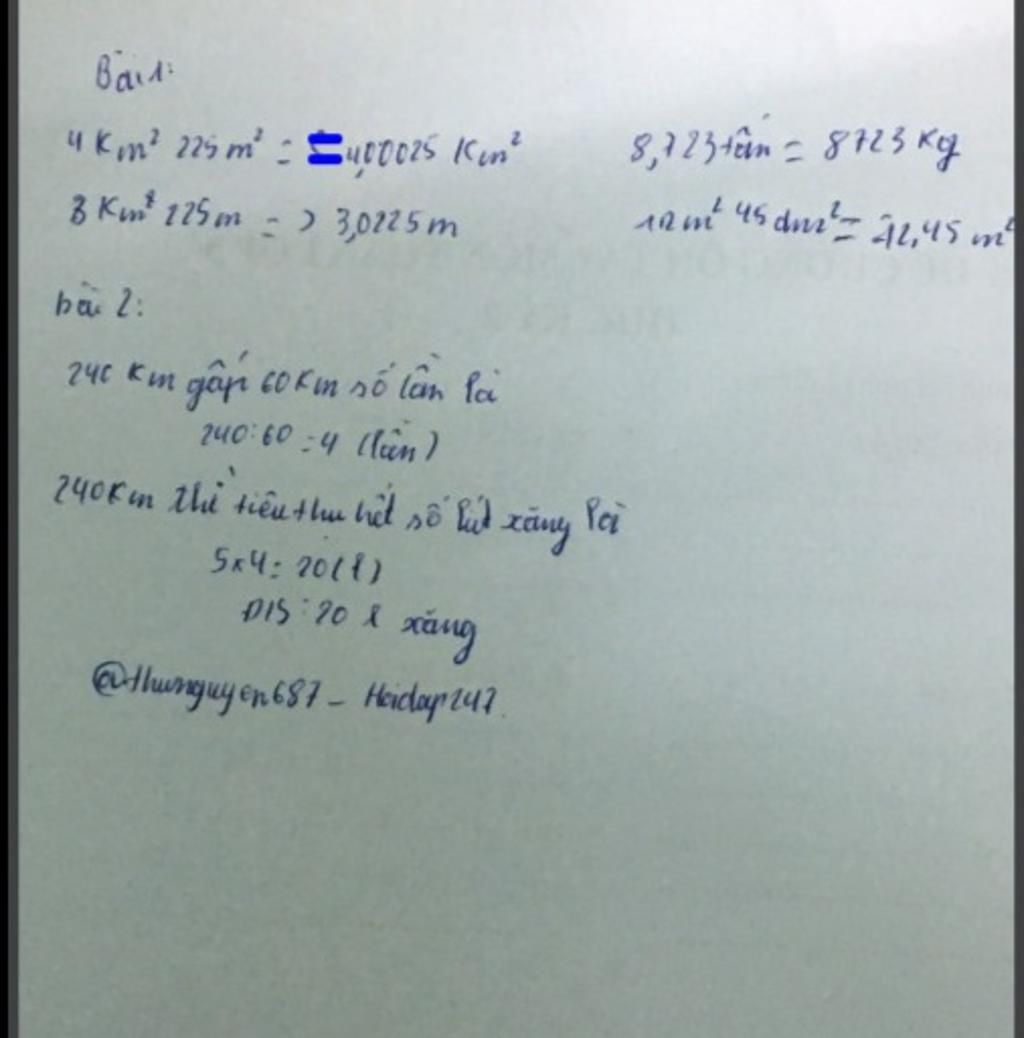 Bài 1:
4 Km² 225 m² = = 4,00025 Km²
8,723 tấn = 8723 Kg
3 Km² 225 m = > 3,0225 m
12 m² 45 dm² = 12,45 m²
bài 2:
240 Km gấp 60 Km số lần là
240 : 60 = 4 (lần)
240 Km thì tiêu thu hết số lít xăng là
5 x 4 = 20 (l)
Đ/S : 20 l xăng
@thunguyen687 - Hoidap247.